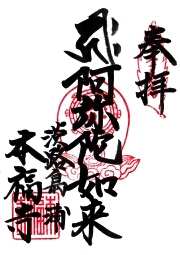 奉拝
阿弥陀如来
淡路島浦
本福寺